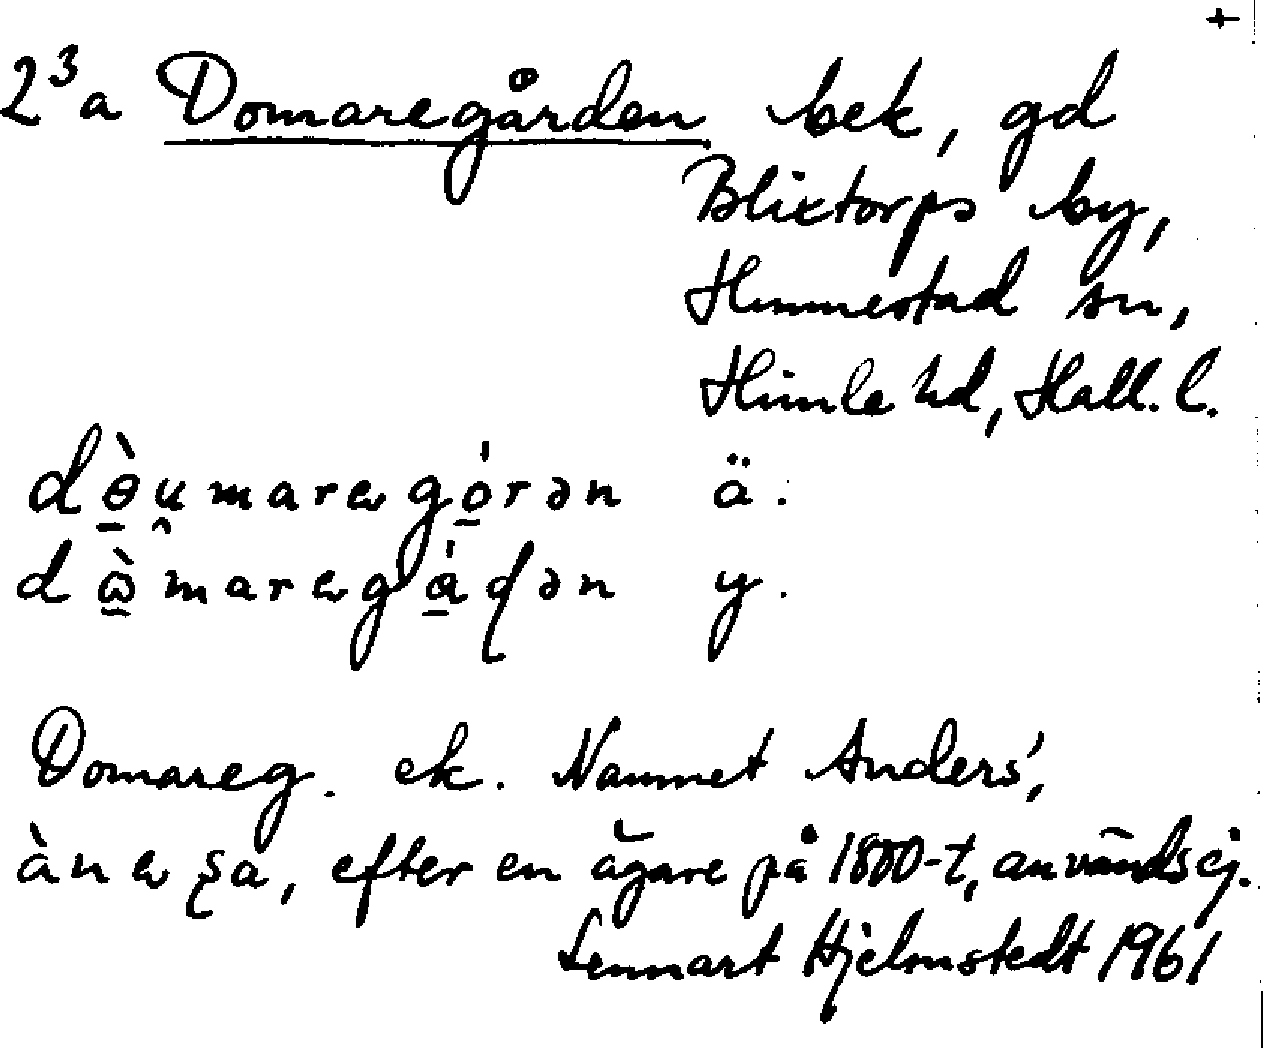 +
2³a Domaregården bek, gd
Blixtorps by,
Himmestad sn,
Himle hd, Hall. l.
dò̱u̯marəgó̱rən ä.
dɷ̱̀marəgá̱ɖən y.
Domareg. ek. Namnet Anders',
ànəʂa, efter en ägare på 1800-t, används ej.
Lennart Hjelmstedt 1961